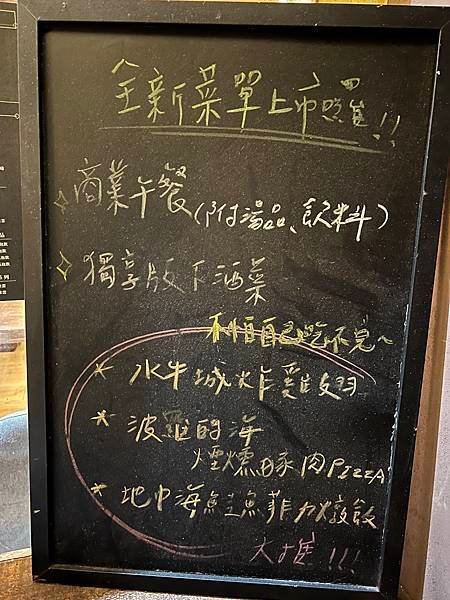 全新菜單上市囉!!
☆商業午餐(附湯品、飲料)
☆獨享版下酒菜
不怕自己吃不完~
* 水牛城炸雞翅
* 波羅的海
煙燻豚肉PIZZA
* 地中海鮭魚菲力燉飯
大推!!!